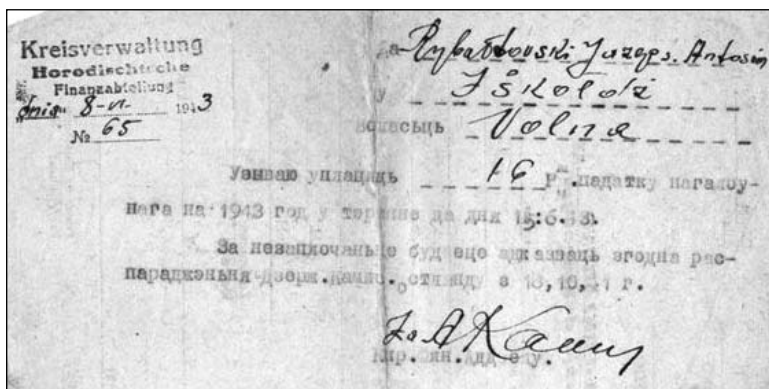 Kreisverwaltung
Horodischtsche
Finanzabteilung
dnia 8-VI- 1943
№ 65
да Rybałtovski Juzaps. Antosin
у Iškoldź
воласьць Volna
Узываю уплаціць 16 р. падатку нагалоу-
нага на 1943 год у тэрміне да дня 15.6.43.
За незаплочаньне будзеце адказваць згодна рас-
параджэньня дзерж. 
Кір. Фін. Аддзелу.